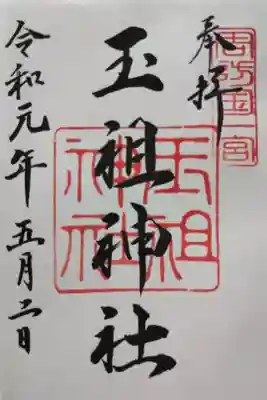 周防國一宮
奉拝
玉祖神社
玉祖
神社
令和元年五月二日